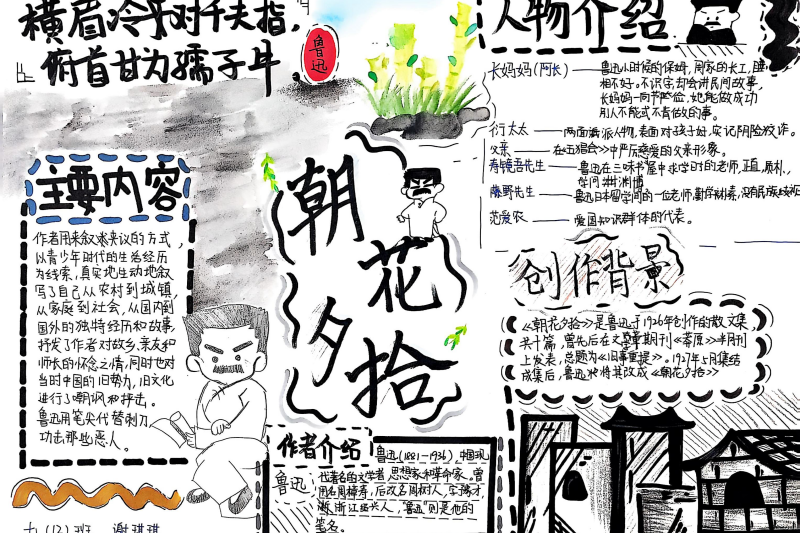 横眉冷对千夫指，
俯首甘为孺子牛
鲁迅
人物介绍
长妈妈(阿长)——鲁迅小时候的保姆，周家的长工，睡
相不好。不识字，却会讲民间故事，
长妈妈一向节俭，她能做成功
别人不能或不肯做的事。
衍太太——两面派人物，表面对孩子好，实记阴险狡诈。
父亲——在《五猖会》中严厉慈爱的父亲形象。
寿镜吾先生——鲁迅在三味书屋中求学时的老师，正直、质朴、
学问渊博
藤野先生——鲁迅日本留学间的一位老师，勤学朴素，没有民族
范爱农——爱国知识群体的代表。
主要内容
作者用来叙来议的方式，
以青少年时代的生活经历
为线索，真实地生动地叙
写了自己从农村到城镇，
从家庭到社会，从国内到
国外的独特经历和故事，
抒发了作者对故乡，亲友和
师长的怀念之情，同时也对
当时中国的旧势力，旧文化
进行了嘲讽和抨击。
鲁迅用笔尖代替刺刀
功击那些恶人。
朝花夕拾
创作背景
《朝花夕拾》是鲁迅于1926年创作的散文集，
共十篇，曾先后在文学期刊《莽原》半月刊
上发表，总题为《旧事重提》。1927年5月集结
成集后，鲁迅将其改成《朝花夕拾》
作者介绍
鲁迅：
鲁迅(1881-1936)，中国现
代著名的文学者 思想家和革命家。曾
用名周樟寿，后改名周树人，字豫才，
浙江绍兴人，"鲁迅"则是他的
笔名。
七(12)班 谢琪琪